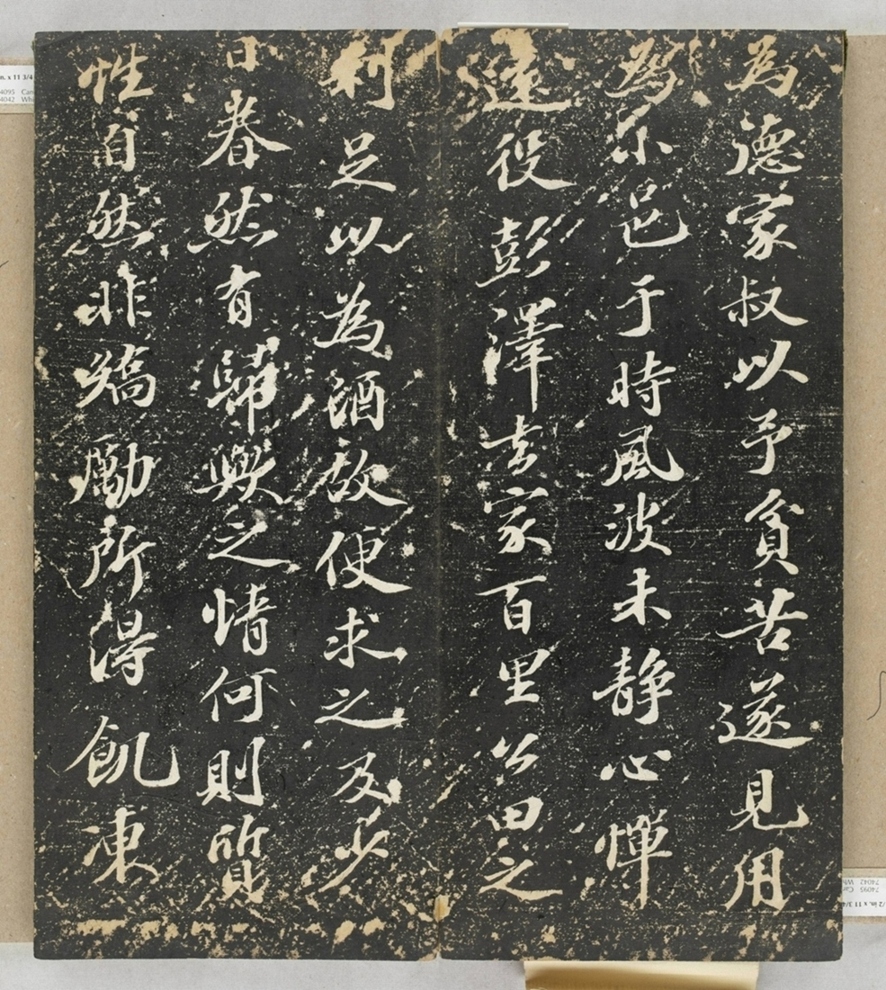 為德家叔以予貧苦遂見用
為小邑于時風波未静心憚
遠役彭澤去家百里公田之
利足以為酒故便求之及少
日眷然有歸歟之情何則質
性自然非矯勵所得飢凍